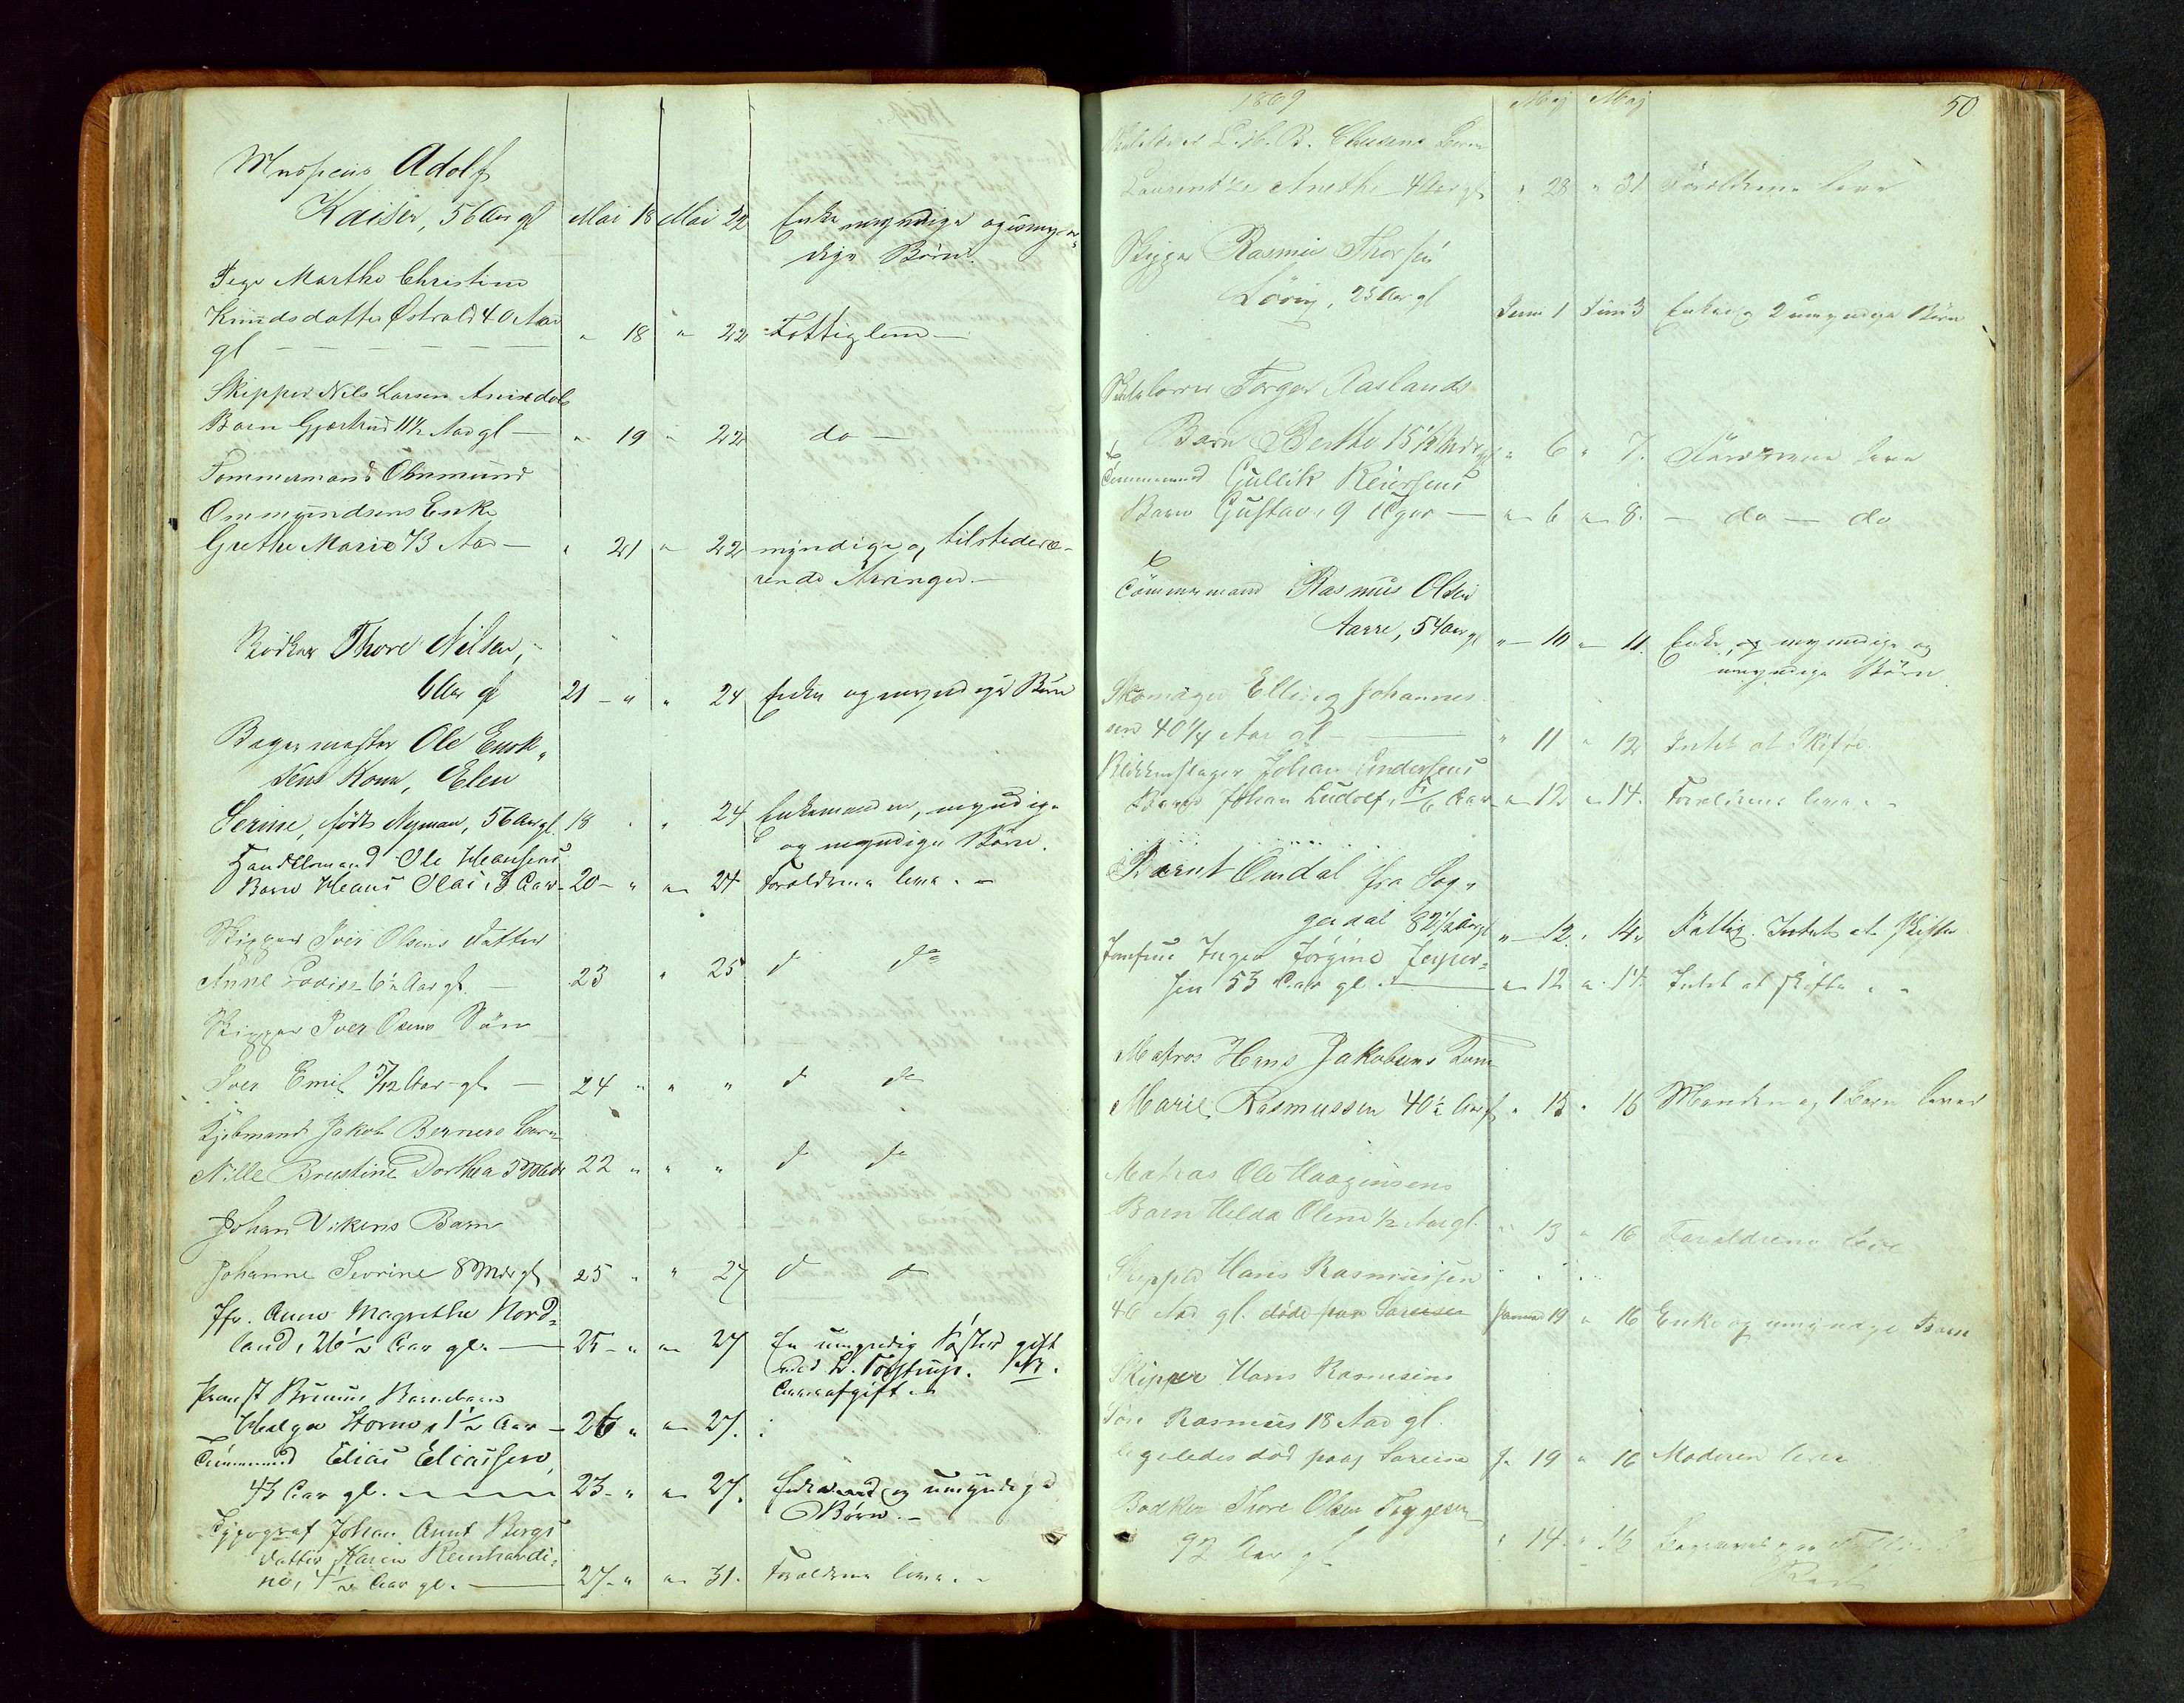 Musicus Adolf
Kaiser, 56 Aar gl Mai 18 Mai 22 Enke myndige og umyn-
dige Børn
Pige Marthe Christine
Knudsdatter Østrold 40 Aar
gl — " 18 " 22 Fattiglem —
Skipper Nils Larsen
Barn Gjertrud 11½ Aar gl — " 19 " 22 do —
Tømmermand
Ommundsens Enke
Grethe Marie 73 Aar — " 21 " 22 myndige og tilstedevæ-
rende Arvinger —
Bødker Thore Nilsen,
Aar gl 21 — " " 24 Enke og myndige Børn
Bagermester Ole Enok-
sens Kone, Elen
Serine, født Nyman, 56 Aar gl. 18 " " 24 Enkemanden, myndige
og myndige Børn.
Handelsmand Ole Hansens
Barn Hans Olai, Aar — 20 — " " 24 Forældrene leve. —
Skipper Iver Olsens Datter
Anne Lovise 6½ Aar gl. — 23 " 25 d do
Skipper Iver Olsens Søn
Iver Emil 5/12 Aar gl — 24 " " " d do
Kjøbmand Jakob Berners Barn
Nille Dorthea 5 Mdr 22 " " " d do
Johan Vikens Barn
Johanne Severine 8 Mdr gl 25 " " 27 d d
Jfr. Anne Magrethe Nord-
land, 26½ Aar gl. — 25 — " " 27 En umyndig Søster gift
med
Provst
Helga Storm, 1½ Aar — 26 " " 27.
Tømmermand Elias Eliassen,
43 Aar gl. — 23 — " " 27. Enke og umyndige
Børn. —
Typograf Johan Arnt Bergs
Datter Karen Reinhardi-
ne, 4½ Aar gl. — 27 — " " 31. Forældrene leve. —
1869 Maj Maj 50
B. Clausens Barn
Laurentze Anethe 4 Aar gl " 28 " 31 Forældrene leve
Skipper Rasmus Thorsen
25 Aar gl Juni 1 Juni 3 Enke og 2 umyndige Børn
Torger Aaslands
Barn Berthe 15½ Mdr gl " 6 " 7. Forældrene leve
Tømmermand Gullik Reiersens
Barn Gustav, 9 Uger — " 6 " 8. — do — do
Tømmermand Rasmus Olsen
Aarre, 54 Aar gl " — 10 " 11. Enke, og myndige og
umyndige Børn
Skomager Elling Johannes-
sen 40¼ Aar gl — " 11 " 12 Intet at skifte.
Blikkenslager Johan Endersens
Barn Johan Ludolf, 5/6 Aar " 12 " 14. Forældrene leve. —
Bernt Omdal fra Sog-
gendal 82½ Aar gl " — 12. " 14 Fattig. Intet at skifte
Jomfrue Inger Jørgine Jesper-
sen 53 Aar gl. — " 12 " 14. Intet at skifte. —
Matros Hans Jakobsens Kone
Marie Rasmussen 40½ Aar gl " 13 " 16 Manden og 1 Barn lever
Matros Ole Haagensens
Barn Helda Oline ½ Aar gl. " 13 " 16 Forældrene leve
Skipper Hans Rasmussen
46 Aar gl. døde paa 19 " 16 Enke og umyndige Børn
Skipper Hans Rasmussens
Søn Rasmus 18 Aar gl.
ligeledes død paa 19 " 16 Moderen lever
Bødker Thore Olsen Tryggesen
92 Aar gl " 14 " 16